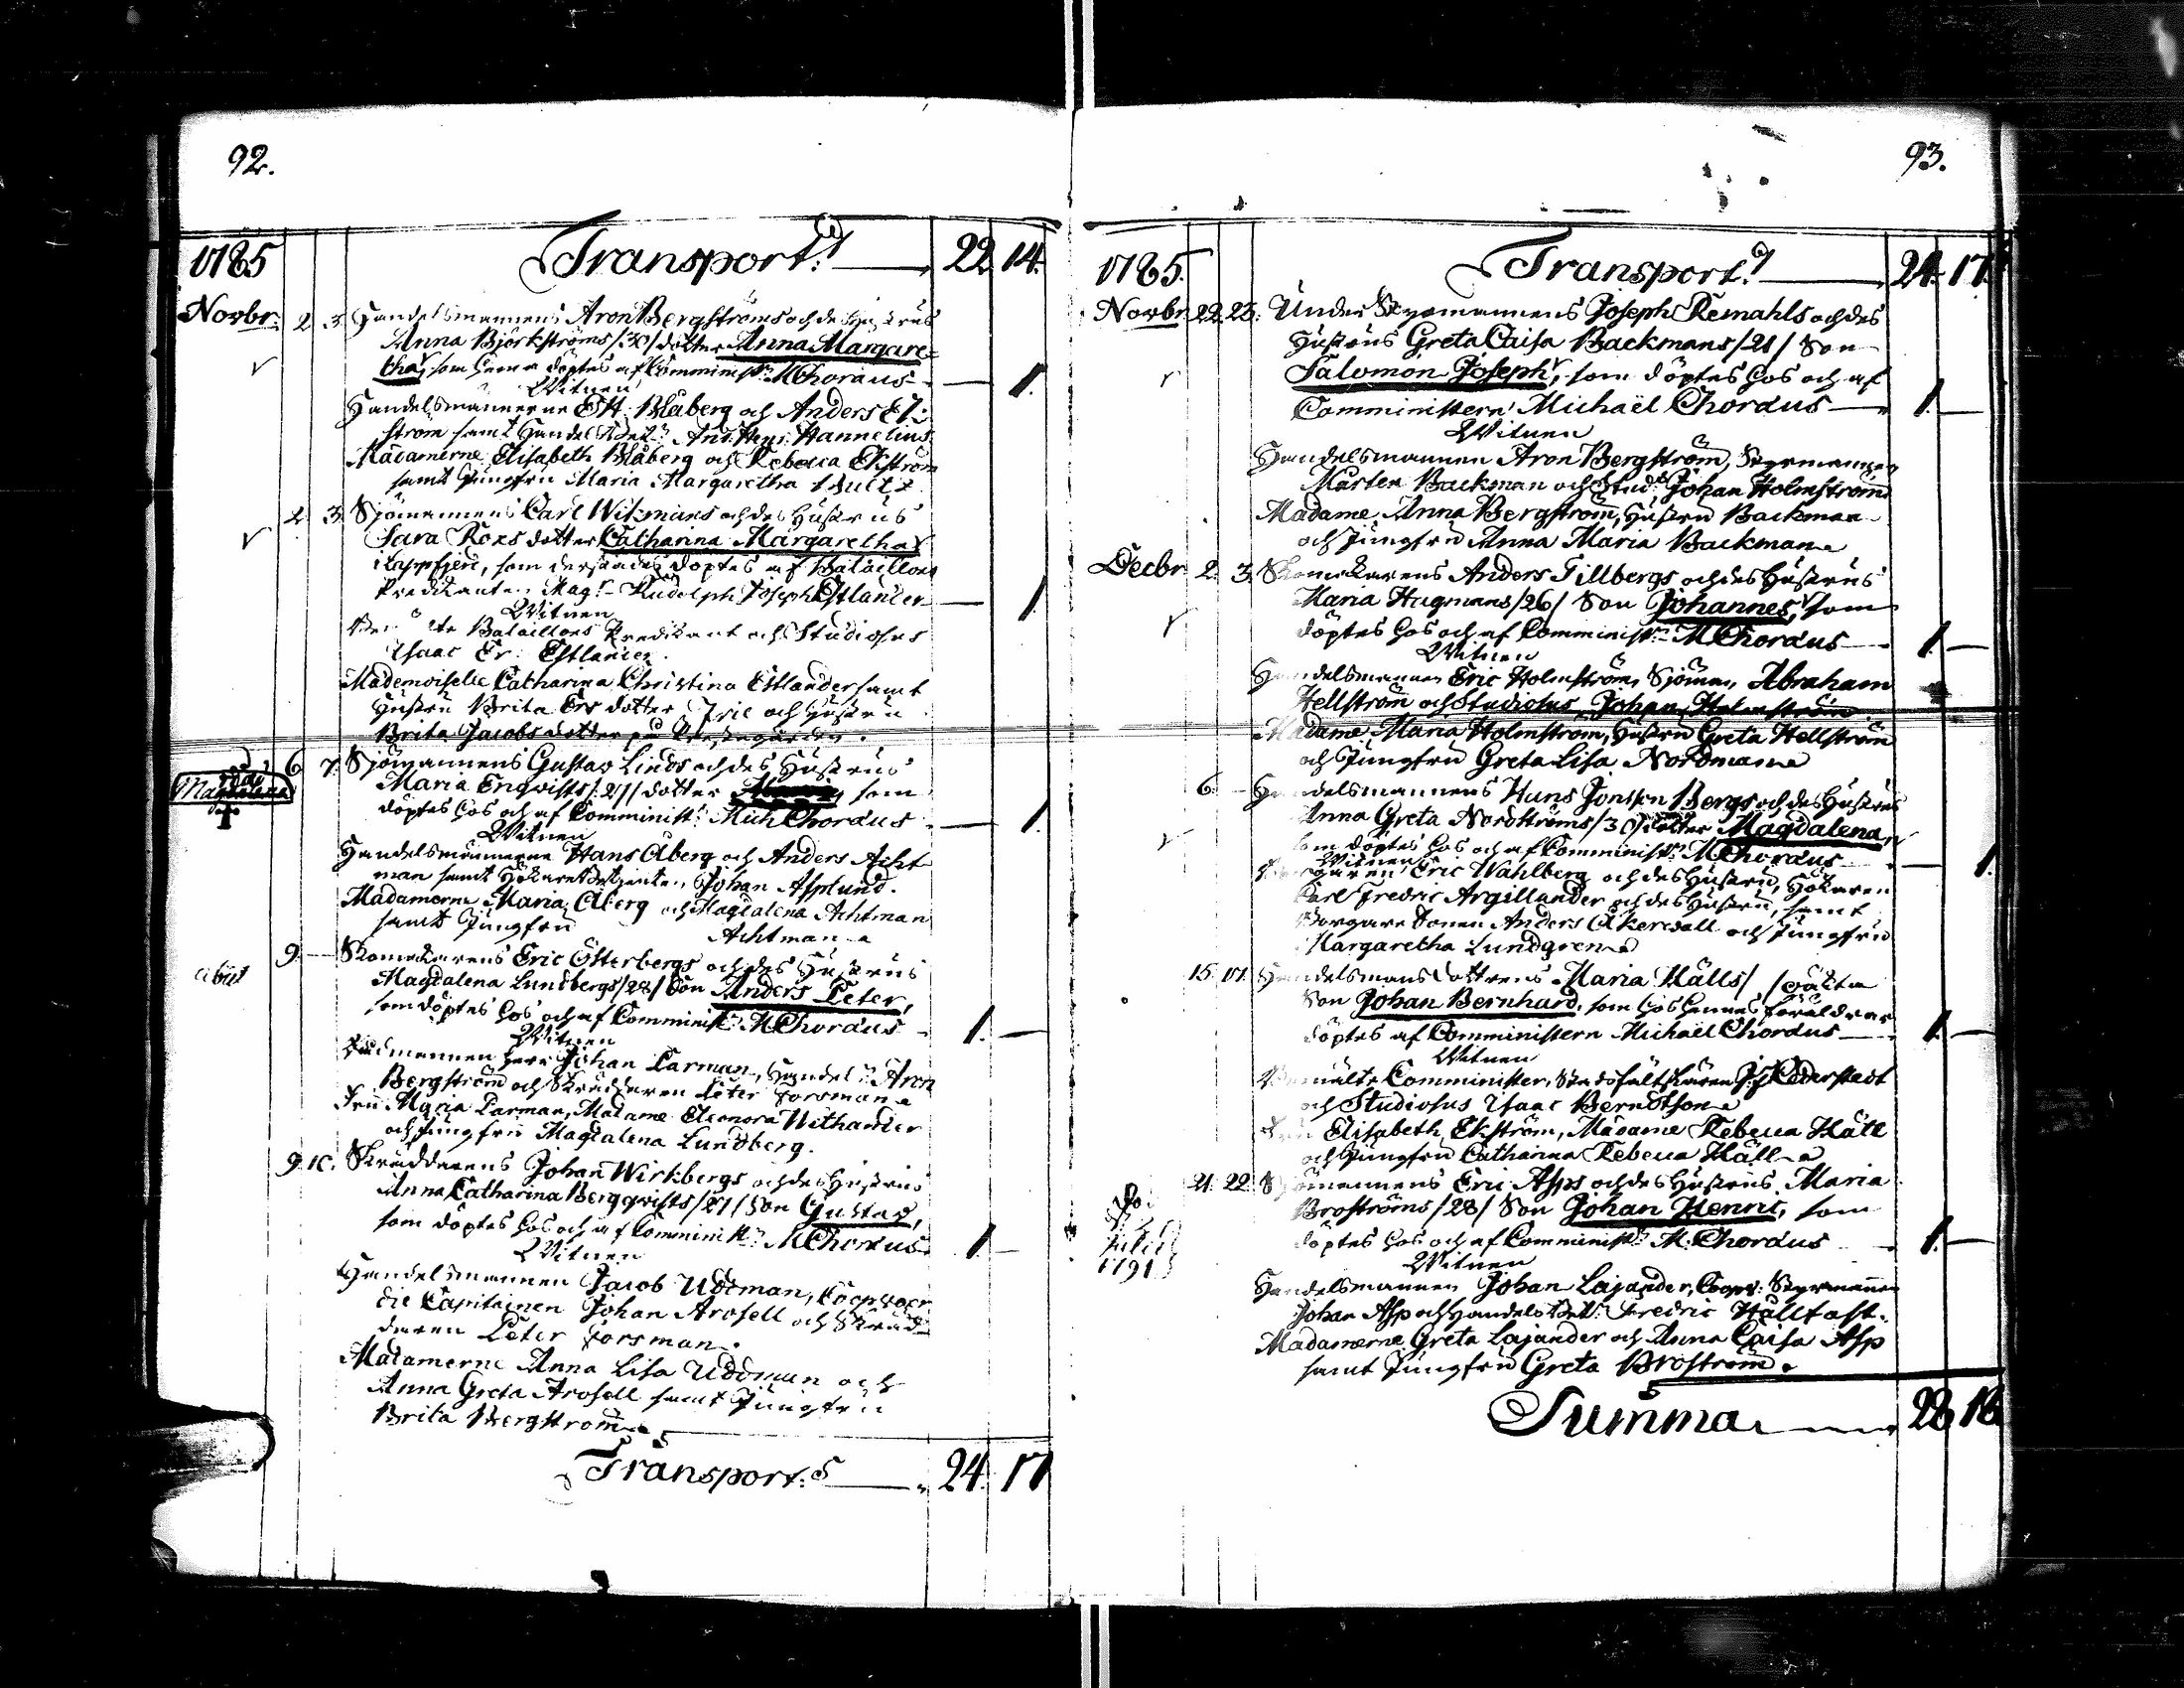 92.
1785 Transport:d 22. 14.
Novbr. 2. 3. Handelsmannens Aron Bergströms och des Hustrus
Anna Björkströms /30/ dotter Anna Margare=
tha, som hema döptes af Comminist:n M Choraus 1.
Witnen
Handelsmännerne Blåberg och Anders Ek=
ström samt Handels
Madamerne Elisabeth Blåberg och Rebecca Ekström
samt Jungfru Maria Margaretha
2. 3. Sjömannens Carl Wikmans och des Hustrus
Sara Roxs dotter Catharina Margaretha
i Kappsjerü, som derstädes döptes af Bataillons
Predikanten Mag:r Rudolph Joseph Estlander 1.
Witnen
Bataillons Predikant och Studiosus
Isaac Er: Estlander.
Mademoiselle Catharina Christina Estlander samt
Hustru Brita Ers dotter och Hustru
Brita Jacobs dotter på
Magdalena
6. 7. Sjömannens Gustav Linds och des Hustrus
Maria Enqvists /27/ dotter som
döptes hos och af Comminist: Mich Choraus 1.
Witnen
Handelsmännerne Hans Åberg och Anders Acht
man samt Johan Asplund.
Madamerne Maria Åberg och Magdalena Achtman
samt Jungfru Achtman
abiit
9. Skomakarens Eric Österbergs och des Hustrus
Magdalena Lundbergs /28/ Son Anders Peter,
som döptes hos och af Comminist:n M Choraus 1.
Witnen
Rådmannen Herr Johan Parman, Handel:n Aron
Bergström och Skräddaren Peter Forsman
Fru Maria Parman, Madame Eleonora Withander
och Jungfru Magdalena Lundberg.
9. 10. Skräddarens Johan Wirkbergs och des Hustrus
Anna Catharina Bergqvists /27/ Son Gustav,
som döptes hos och af Comminist:n M Choraus 1.
Witnen
Handelsmannen Jacob Uddman, Coopvaer
die Capitainen Johan Arosell och Skräd=
daren Peter Forsman.
Madamerne Anna Lisa Uddman och
Anna Greta Arosell samt Jungfru
Brita Bergström
Transport: 24. 17
93.
1785. Transport:d 24. 17.
Novbr. 22. 23. Under Styrmannens Joseph Remahls och des
Hustrus Greta Caisa Backmans /21/ Son
Salomon Joseph, som döptes hos och af
Comministern Michaël Choraus 1.
Witnen
Handelsmannen Aron Bergström, Styrmannen
Mårten Backman och Stud: Johan Holmström
Madame Anna Bergström, Hustru Backman
och Jungfru Anna Maria Backman
Decbr. 2. 3. Skomakarens Anders Tillbergs och des Hustrus
Maria Hagmans /26/ Son Johannes, som
döptes hos och af Comminist:n M Choraus 1.
Witnen
Handelsmannen Eric Holmström, Sjöman Abraham
Hellström och Studiosus Johan Holmström
Madame Maria Holmström, Hustru Greta Hellström
och Jungfru Greta Lisa Nordman
6. Handelsmannens Hans Jonsson Bergs och des Hustrus
Anna Greta Nordströms /30/ dotter Magdalena,
som döptes hos och af Comminist:n M Choraus 1.
Witnen
Eric Wahlberg och des Hustru, Hökaren
Carl Fredric Argillander och des Hustru, samt
Borgare Sonen Anders Åkerwall och Jungfru
Margaretha Lundgren
15. 17. Handelsmans Dottrens Maria Hälls / / oäkta
Son Johan Bernhard, som hos hennes Föräldrar
döptes af Comministern Michaël Choraus 1.
Witnen
Comminister, Stadsfältskären Cederstedt
och Studiosus Isaac Berndtson
Fru Elisabeth Ekström, Madame Rebecca Häll
och Jungfru Catharina Rebecca Häll
Julii
1791
21. 22. Sjömannens Eric Asps och des Hustrus Maria
Broströms /28/ Son Johan Henric, som
döptes hos och af Comminist:n M. Choraus 1.
Witnen
Handelsmannen Johan Lajander, Coopv: Styrmannen
Johan Asp och Handels Fredric Hällfast.
Madamerne Greta Lajander och Anna Caisa Asp
samt Jungfru Greta Broström.
Summa 28 18